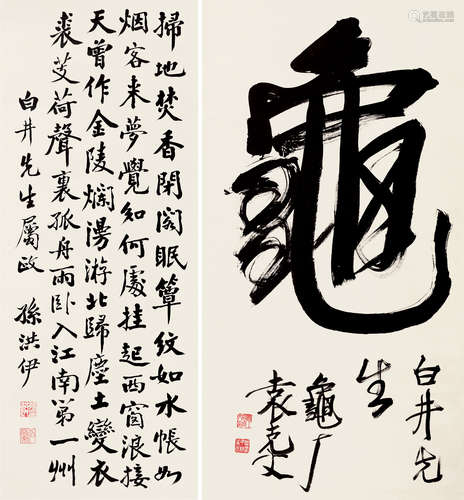 掃地焚香閉閣眠簟紋如水帳如
烟客来夢覺知何處挂起西窗浪接
天曾作金陵爛漫游北歸塵土變衣
裘芰荷聲裏孤舟雨臥入江南第一州
白井先生屬政 孫洪伊
龜
白井先
生
龜厂
袁克文